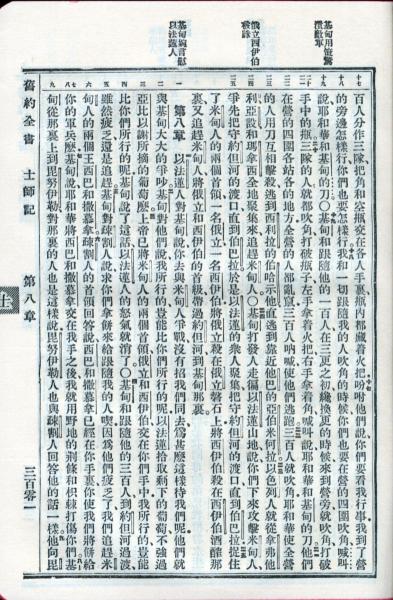 基甸用策驚
潰敵軍
俄立西伊伯
被誅
基甸婉言慰
以法蓮人
百人分作三隊、把角和空瓶交在各人手裏瓶內都藏着火把吩咐他們說你們要看我行事我到了營
的旁邊怎樣行你們也要怎樣行我和一切跟隨我的人吹角的時候你們也要在營的四圍吹角喊叫
說耶和華和基甸的刀○基甸和跟隨他的一百人在三更之初纔換更的時候來到營旁就吹角打破
手中的瓶三隊的人就都吹角打破瓶子左手拿着火把右手拿着角喊叫說耶和華和基甸的刀他們
在營的四圍各站各的地方全營的人都亂竄三百人吶喊使他們逃跑三百人就吹角耶和華使全營
的人用刀互相擊殺逃到西利拉的伯哈示他直逃到靠近他巴的亞伯米何拉以色列人就從拿弗他
利亞設和瑪拿西全地聚集來追趕米甸人○基甸打發人走徧以法蓮山地說你們下來攻擊米甸人、
爭先把守約但河的渡口直到伯巴拉於是以法蓮的衆人聚集把守約但河的渡口直到伯巴拉捉住
了米甸人的兩個首領一名俄立一名西伊伯將俄立殺在俄立磐石上將西伊伯殺在西伊伯酒醡那
裏又追趕米甸人將俄立和西伊伯的首級帶過約但河到基甸那裏。
第八章 以法蓮人對基甸說你去與米甸人爭戰沒有招我們同去爲甚麼這樣待我們呢他們就
與基甸大大的爭吵基甸對他們說我所行的豈能比你們所行的呢以法蓮拾取剩下的葡萄不強過
亞比以謝所摘的葡萄麼上帝已將米甸人的兩個首領俄立和西伊伯交在你們手中我所行的豈能
比你們所行的呢基甸說了這話以法蓮人的怒氣就消了○基甸和跟隨他的三百人到約但河過渡
雖然疲乏還是追趕基甸對疎割人說求你們拿餅來給跟隨我的人喫因爲他們疲乏了我們追趕米
甸人的兩個王西巴和撒慕拿疎割人的首領回答說西巴和撒慕拿已經在你手裏你使我們將餅給
你的軍兵麼基甸說耶和華將西巴和撒慕拿交在我手之後我就用野地的荊條和枳棘打傷你們基
甸從那裏上到毘努伊勒對那裏的人也是這樣說毘努伊勒人也與疎割人回答他的話一樣他向毘
舊約全書 士師記 第八章 三百零一
士